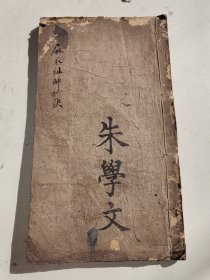 麻衣祖師秘訣
朱學文